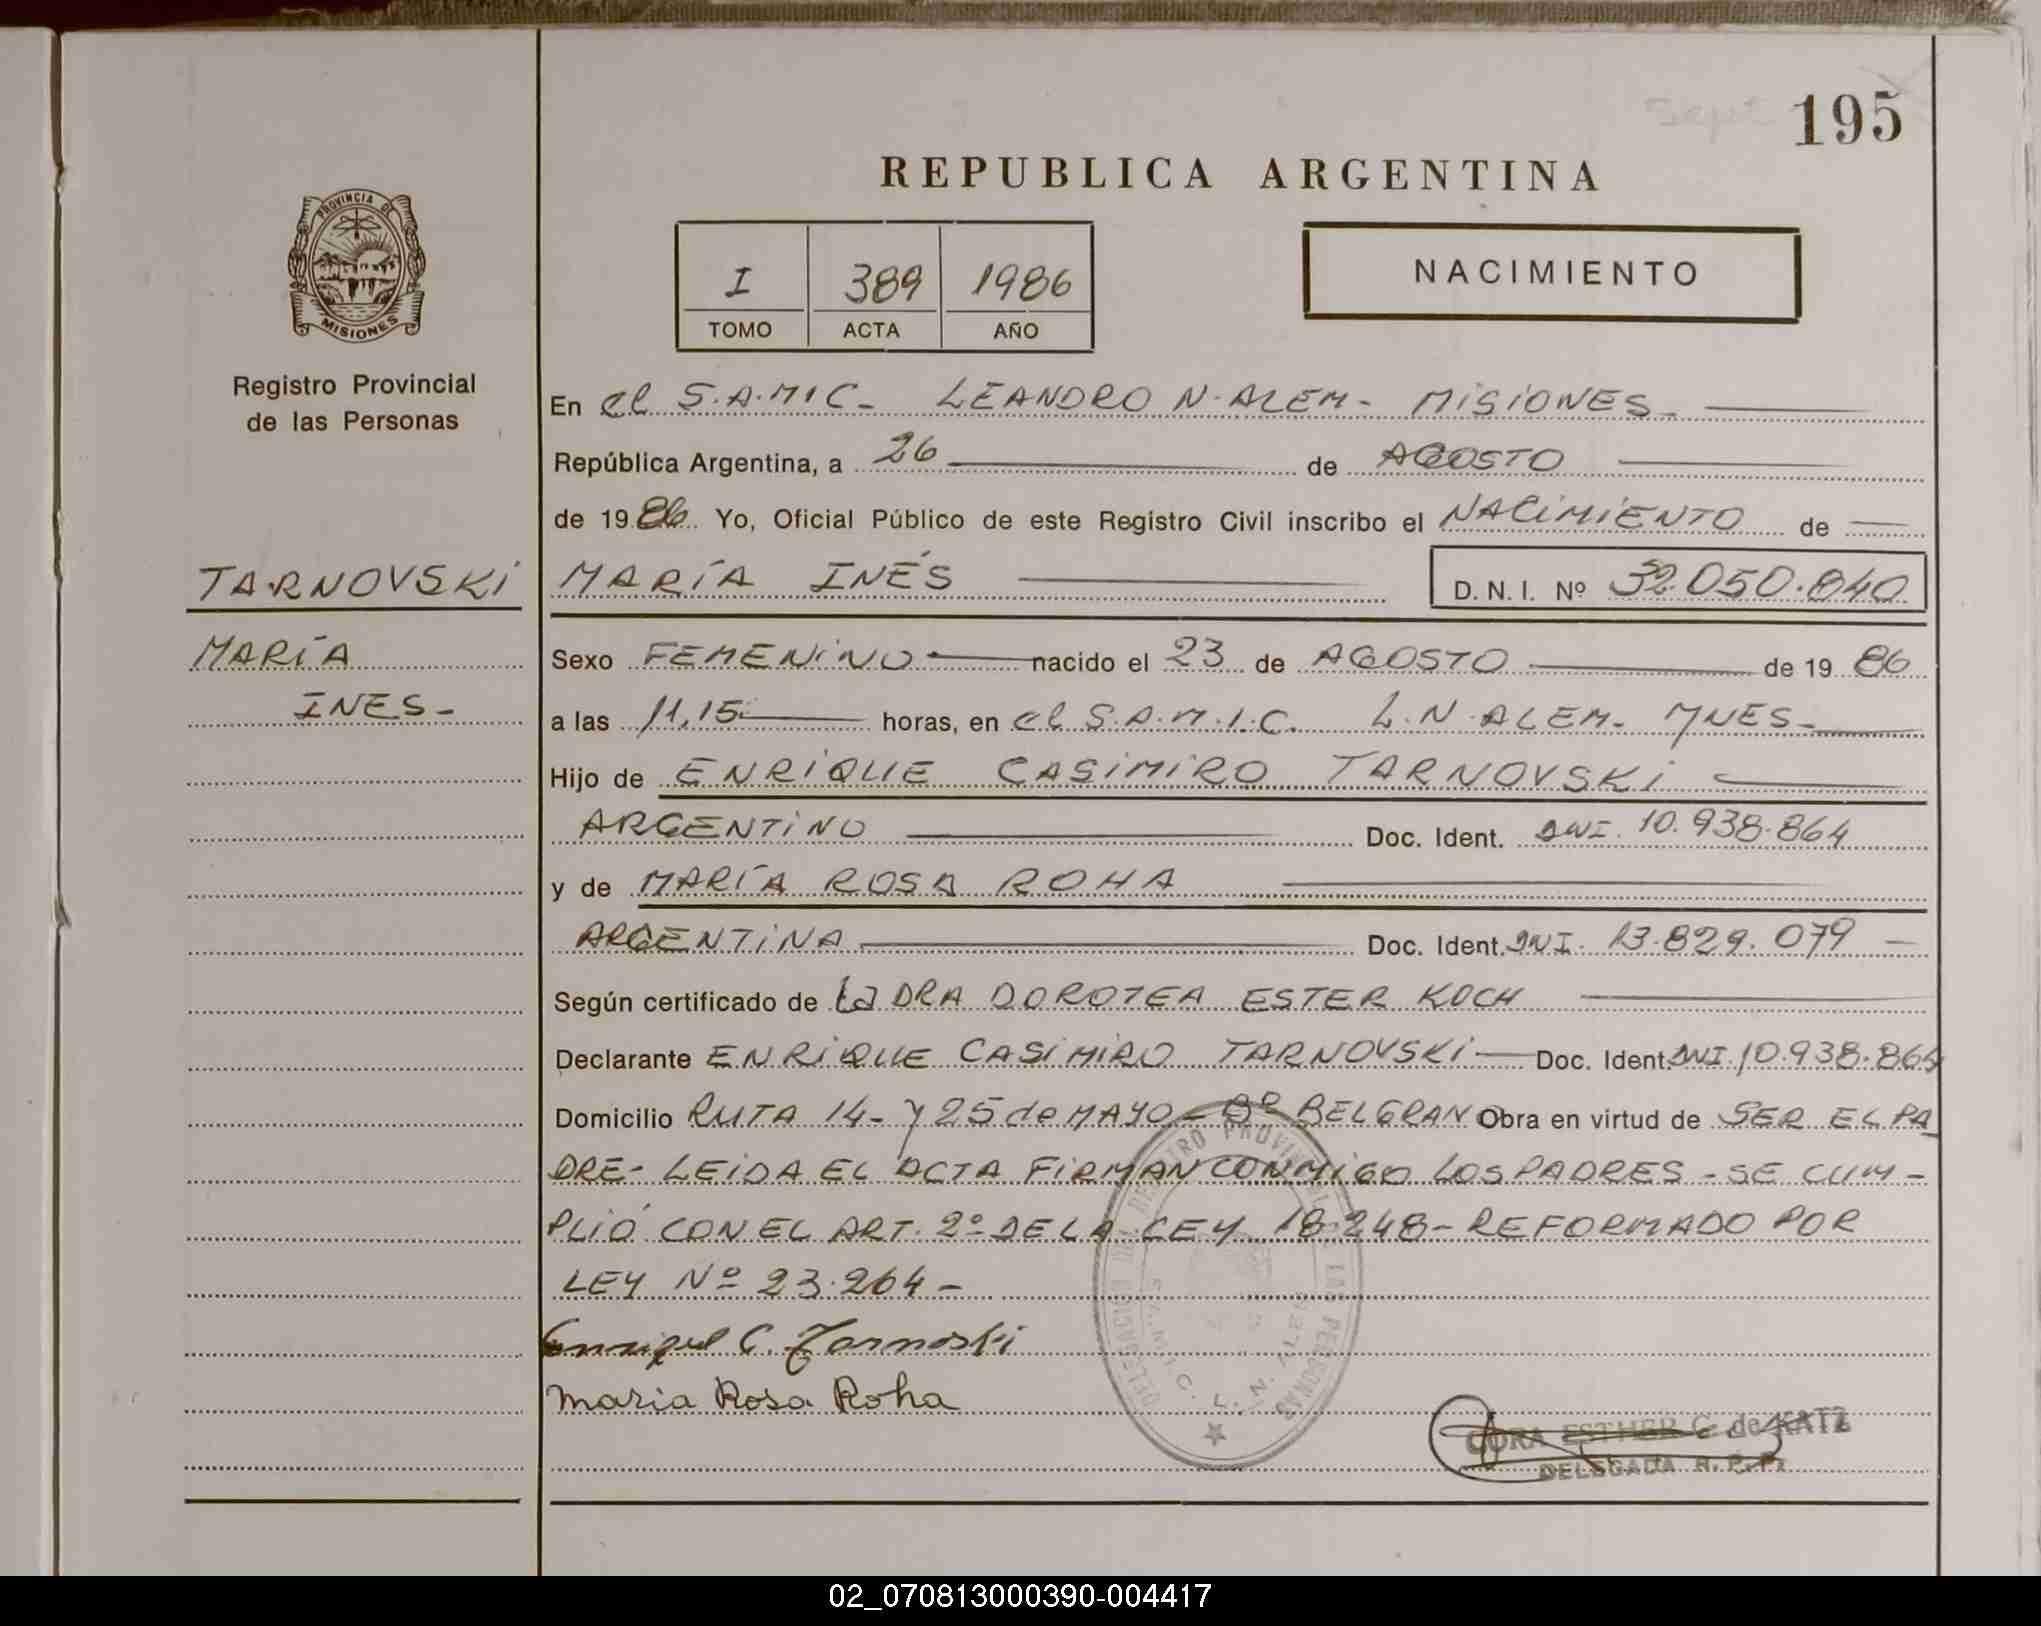 195
REPUBLICA ARGENTINA
PROVINCIA DE
MISIONES
Registro Provincial
de las Personas
I 389 1986
TOMO ACTA AÑO
NACIMIENTO
En el S.A.MIC- LEANDRO N. ALEM- MISIONES-
República Argentina, a 26 de AGOSTO
de 1986 Yo, Oficial Público de este Registro Civil inscribo el NACIMIENTO de
TARNOVSKI MARÍA INÉS D. N. I. Nº 32.050.840
MARÍA Sexo FEMENINO nacido el 23 de AGOSTO de 19 86
INES- a las 11,15 horas, en el S.A.M.I.C. L.N ALEM- MNES-
Hijo de ENRIQUE CASIMIRO TARNOVSKI
ARGENTINO Doc. Ident. DNI. 10.938.864
y de MARÍA ROSA ROHA
ARGENTINA Doc. Ident. DNI. 13.829.079
Según certificado de la DRA DOROTEA ESTER KOCH
Declarante ENRIQUE CASIMIRO TARNOVSKI Doc. Ident. DNI. 10.938.864
Domicilio RUTA 14- y 25 de MAYO- Bº BELGRANO Obra en virtud de SER EL PA
DRE- LEIDA EL ACTA FIRMAN CONMIGO LOS PADRES - SE CUM-
PLIÓ CON EL ART. 2º DE LA LEY 18.248- REFORMADO POR
LEY Nº 23.264-
Enrique C. Tarnoski
Maria Rosa Roha
DELEGACIÓN DEL REGISTRO PROVINCIAL DE LAS PERSONAS
L. N. ALEM
CORA ESTHER G. de KATZ
DELEGADA R. P. P.
02_070813000390-004417